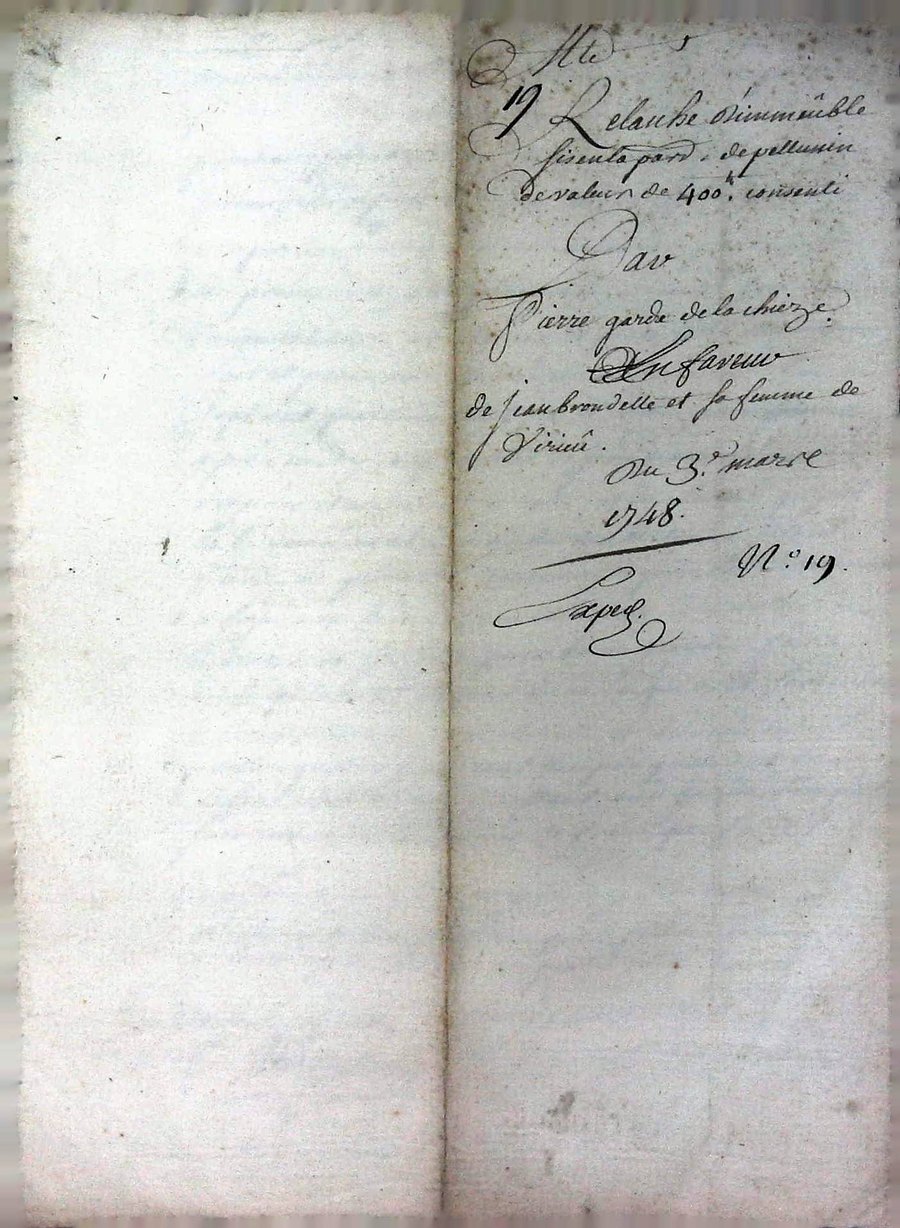 19
Relaxhe d'immeûble
sis en la paro. de pellussin
de valeur de 400ᵗᵗ. consenti
Par
Pierre garde de la chieze
En faveur
de jean brondelle et sa femme de
Virieû.
Du 3ᵉ. mars
1748.
N.º 19.